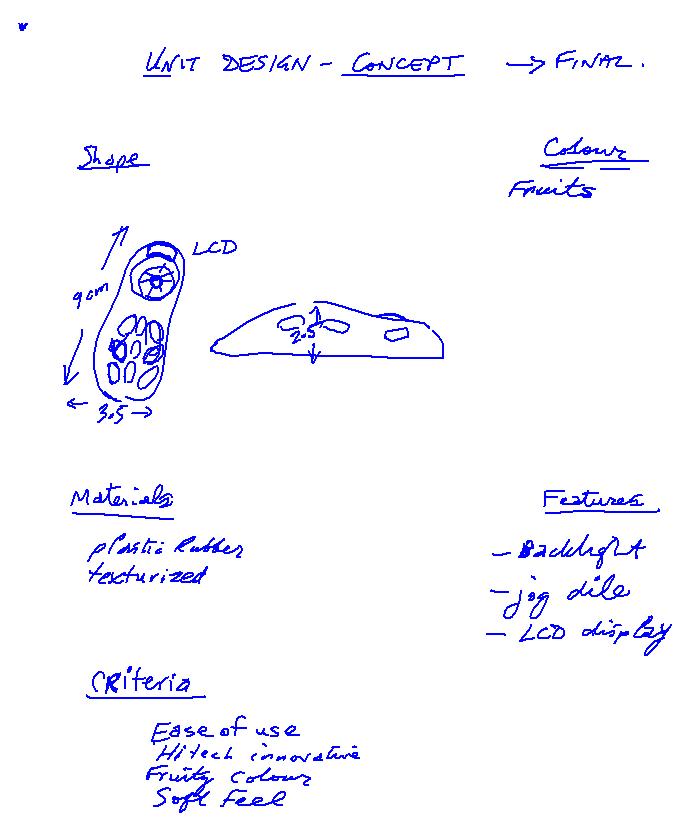 UNIT DESIGN - CONCEPT → FINAL.
Shape
Colour
Fruits
LCD
9cm
2.5
3.5
Materials
plastic Rubber
texturized
Features
- Backlight
- jog dile
- LCD display
CRiteria
Ease of use
Hitech innovative
Fruity Colour
Soft Feel